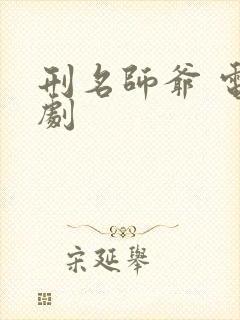 刑名師爺 電
劇
宋延舉